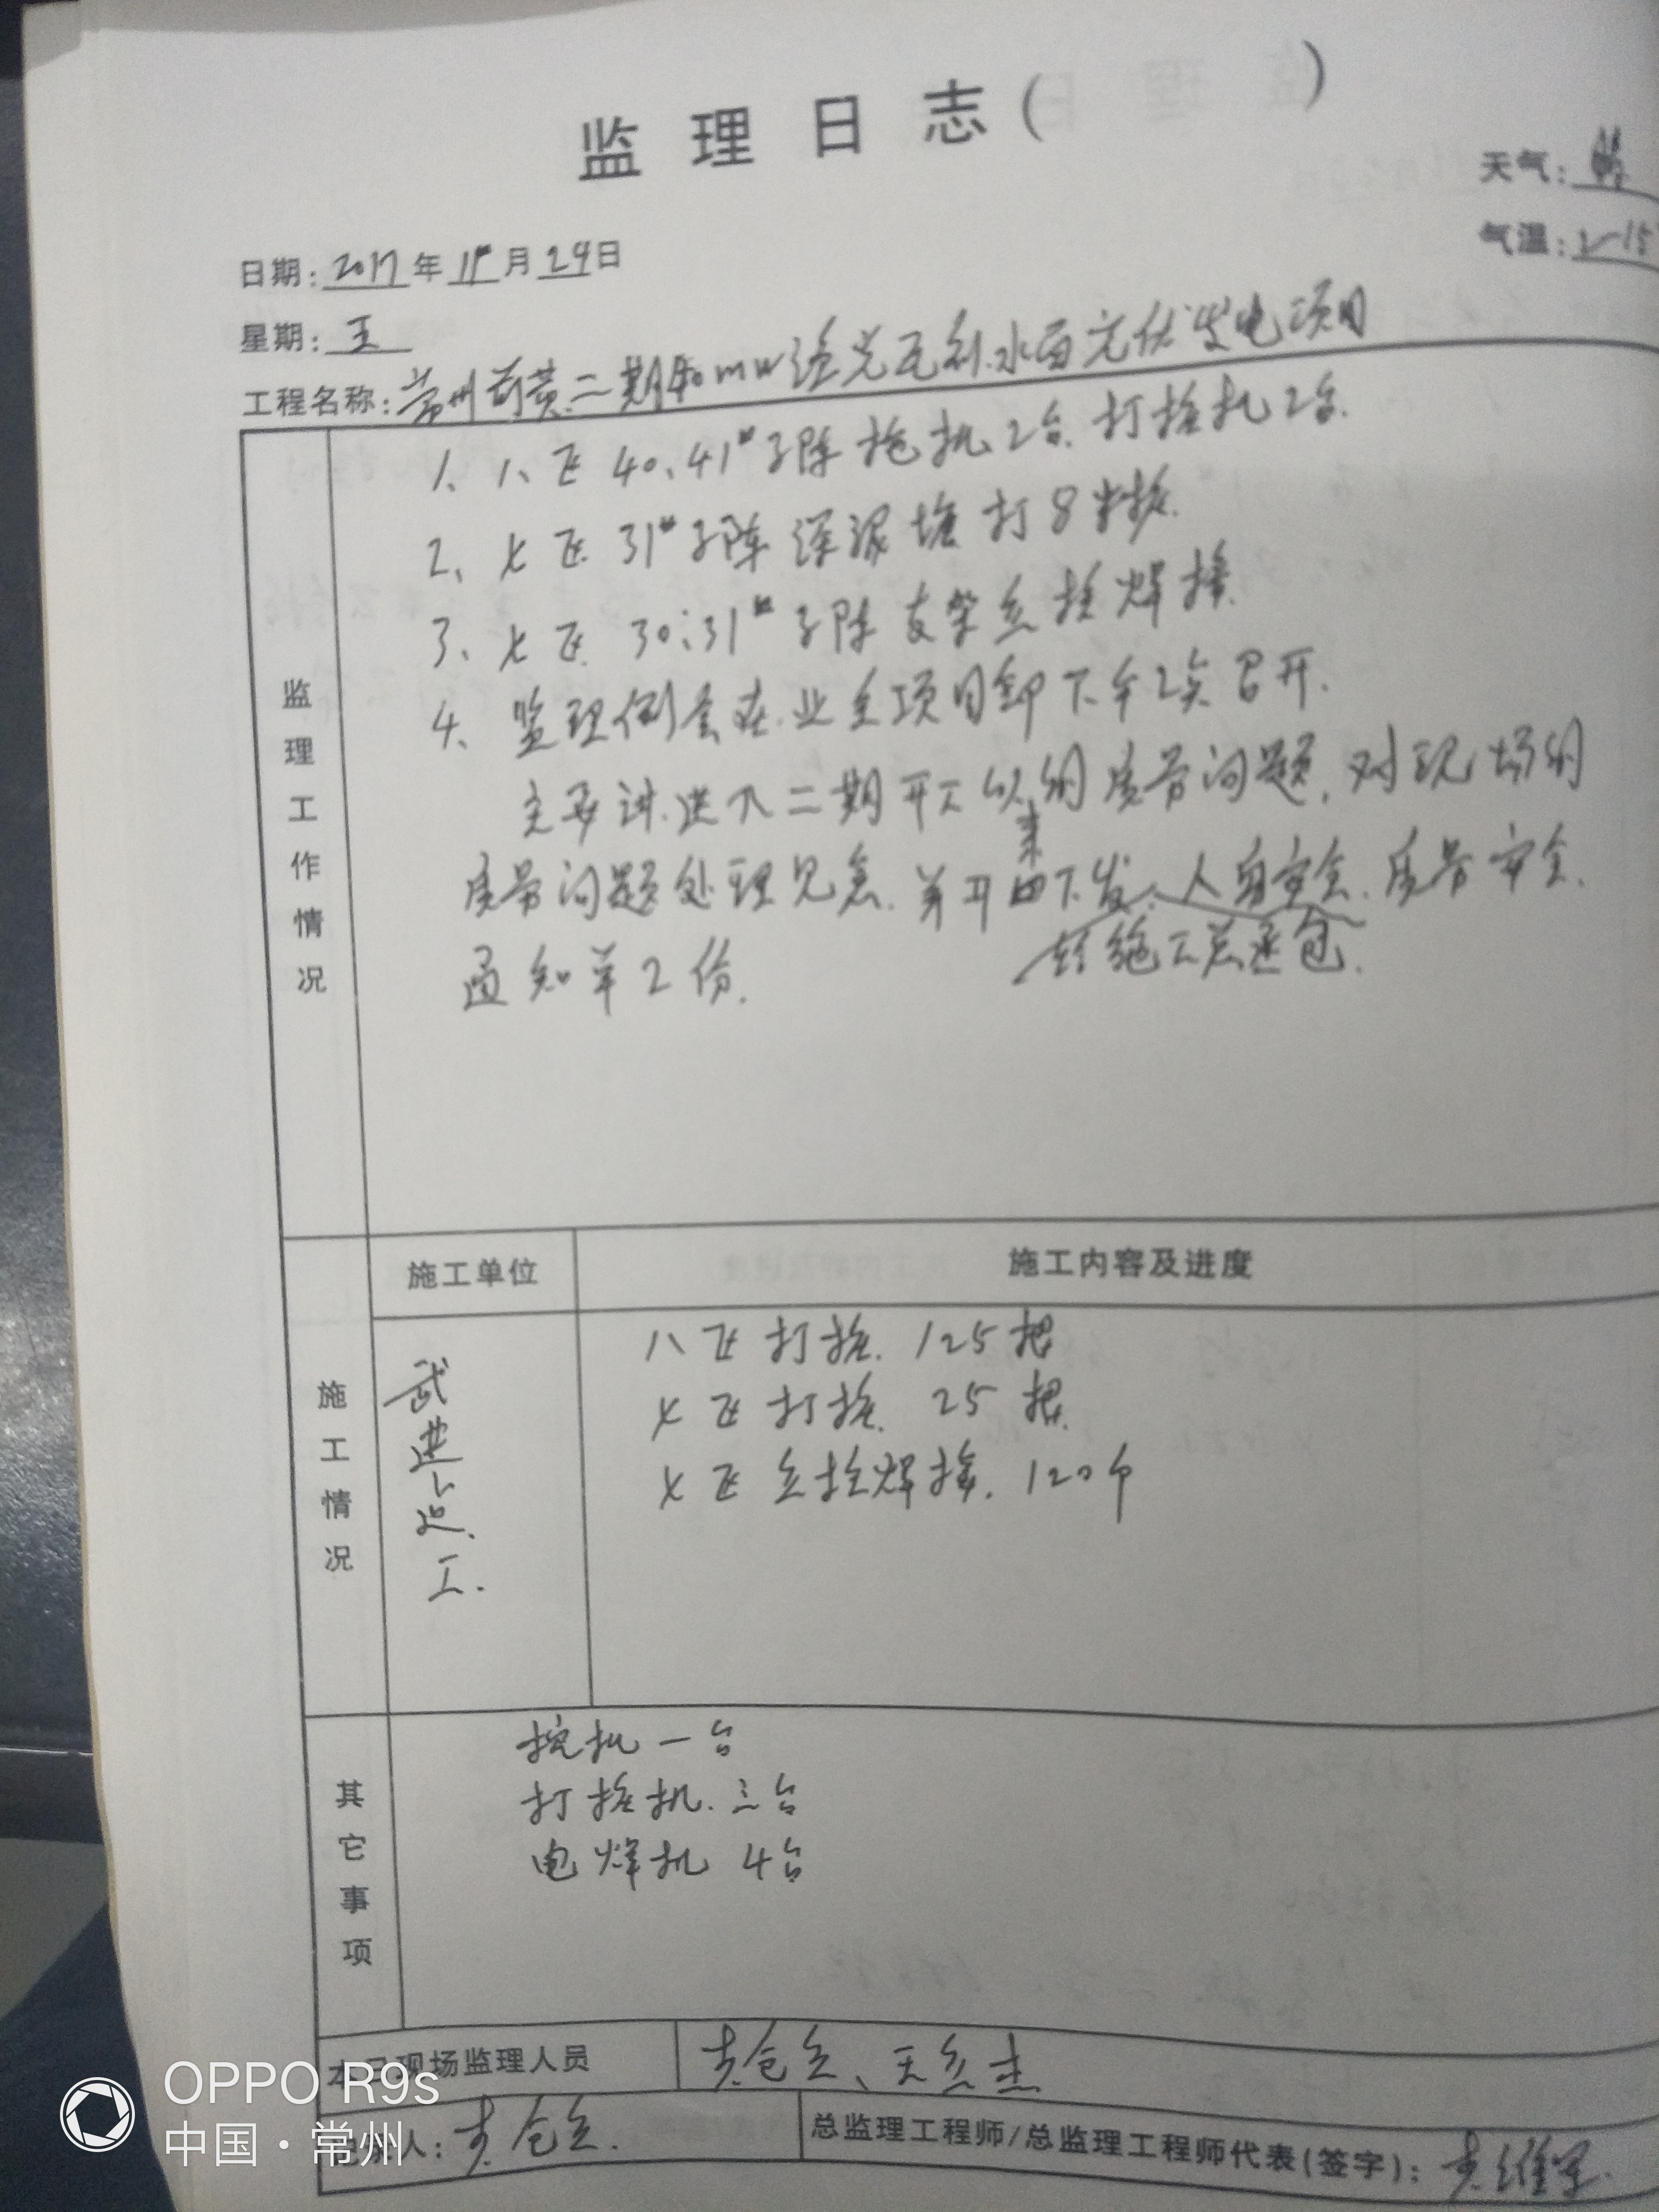 监理日志( )
天气:
日期: 2017年11月24日
气温: 2-15
星期: 五
工程名称: 常州 黄二期40mw 水面光伏发电项目
1、八、区 40、41#子阵 挖机2台. 打桩机2台.
2、七区 31#子阵 深泥塘 打8米桩.
3、七区 30、31#子阵 支架 焊接.
4、监理例会在业主项目部下午2点召开.
主要讲进入二期开工以来的质量问题, 对现场的
质量问题处理见意. 并开出下发、人身安全. 质量安全.
给施工总承包.
通知单2份.
监理工作情况
施工单位
施工内容及进度
施工情况
武进 工.
八区 打桩. 125根
七区 打桩. 25根
七区 焊接. 120个
其它事项
挖机一台
打桩机. 三台
电焊机 4台
本日现场监理人员
记录人:
总监理工程师/总监理工程师代表(签字):
OPPO R9s
中国·常州